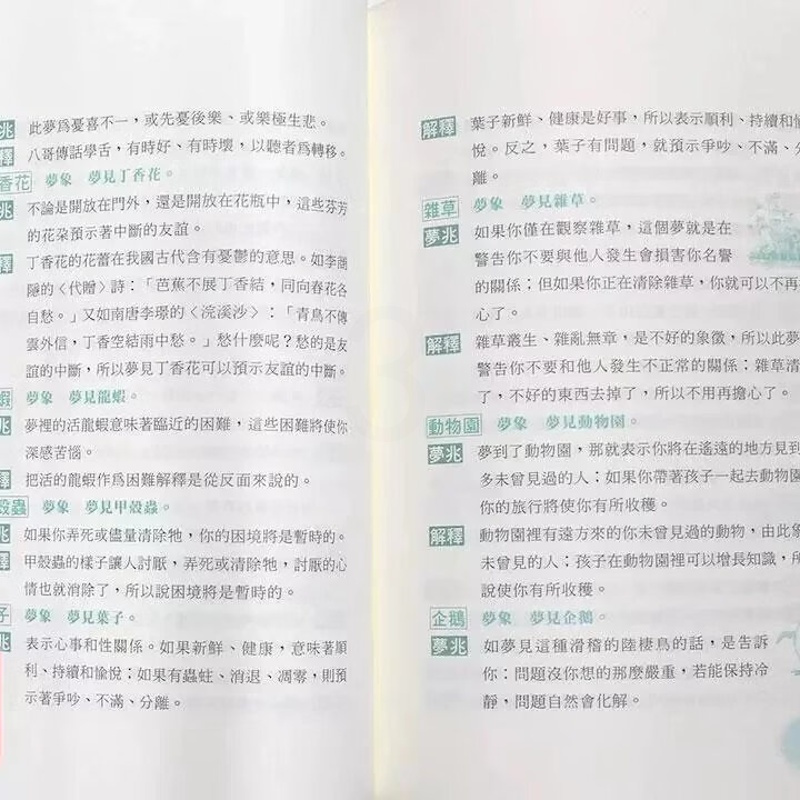 兆 此夢爲憂喜不一，或先憂後樂、或樂極生悲。
釋 八哥傳話學舌，有時好、有時壞，以聽者爲轉移。
香花 夢象 夢見丁香花。
兆 不論是開放在門外，還是開放在花瓶中，這些芬芳
的花朶預示著中斷的友誼。
釋 丁香花的花蕾在我國古代含有憂鬱的意思。如李商
隱的〈代贈〉詩：「芭蕉不展丁香結，同向春花各
自愁。」又如南唐李璟的〈浣溪沙〉：「青鳥不傳
雲外信，丁香空結雨中愁。」愁什麼呢？愁的是友
誼的中斷，所以夢見丁香花可以預示友誼的中斷。
蝦 夢象 夢見龍蝦。
兆 夢裡的活龍蝦意味著臨近的困難，這些困難將使你
深感苦惱。
釋 把活的龍蝦作爲困難解釋是從反面來說的。
殼蟲 夢象 夢見甲殼蟲。
兆 如果你弄死或儘量清除牠，你的困境將是暫時的。
釋 甲殼蟲的樣子讓人討厭，弄死或清除牠，討厭的心
情也就消除了，所以說困境將是暫時的。
子 夢象 夢見葉子。
兆 表示心事和性關係。如果新鮮、健康，意味著順
利、持續和愉悅；如果有蟲蛀、消退、凋零，則預
示著爭吵、不滿、分離。
解釋 葉子新鮮、健康是好事，所以表示順利、持續和愉
悅。反之，葉子有問題，就預示爭吵、不滿、分
離。
雜草 夢象 夢見雜草。
夢兆 如果你僅在觀察雜草，這個夢就是在
警告你不要與他人發生會損害你名譽
的關係；但如果你正在清除雜草，你就可以不再
心了。
解釋 雜草叢生、雜亂無章，是不好的象徵，所以此夢
警告你不要和他人發生不正常的關係；雜草清
了，不好的東西去掉了，所以不用再擔心了。
動物園 夢象 夢見動物園。
夢兆 夢到了動物園，那就表示你將在遙遠的地方見到
多未曾見過的人；如果你帶著孩子一起去動物園
你的旅行將使你有所收穫。
解釋 動物園裡有遠方來的你未曾見過的動物，由此象
未曾見的人；孩子在動物園裡可以增長知識，所
說使你有所收穫。
企鵝 夢象 夢見企鵝。
夢兆 如夢見這種滑稽的陸棲鳥的話，是告訴
你：問題沒你想的那麼嚴重，若能保持冷
靜，問題自然會化解。